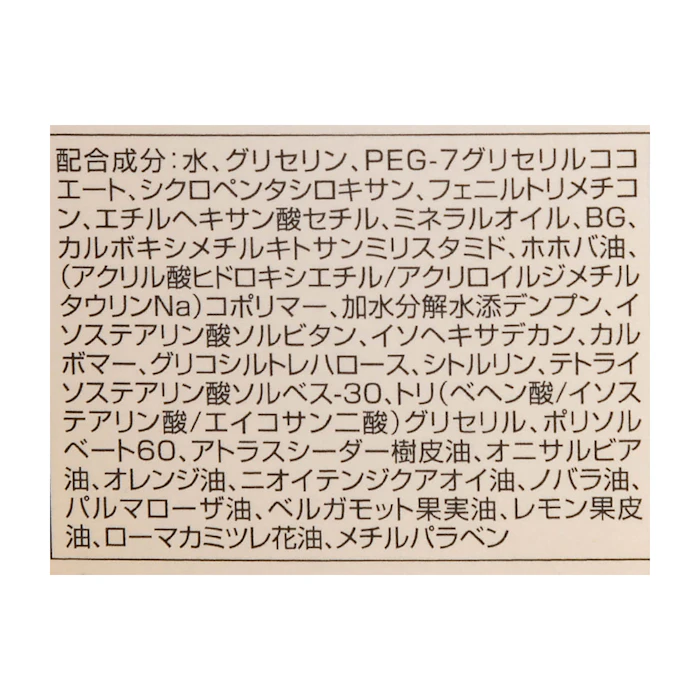 配合成分:水、グリセリン、PEG-7グリセリルココ
エート、シクロペンタシロキサン、フェニルトリメチコ
ン、エチルヘキサン酸セチル、ミネラルオイル、BG、
カルボキシメチルキトサンミリスタミド、ホホバ油、
(アクリル酸ヒドロキシエチル/アクリロイルジメチル
タウリンNa)コポリマー、加水分解水添デンプン、イ
ソステアリン酸ソルビタン、イソヘキサデカン、カル
ボマー、グリコシルトレハロース、シトルリン、テトライ
ソステアリン酸ソルベス-30、トリ(ベヘン酸/イソス
テアリン酸/エイコサン二酸)グリセリル、ポリソル
ベート60、アトラスシーダー樹皮油、オニサルビア
油、オレンジ油、ニオイテンジクアオイ油、ノバラ油、
パルマローザ油、ベルガモット果実油、レモン果皮
油、ローマカミツレ花油、メチルパラベン